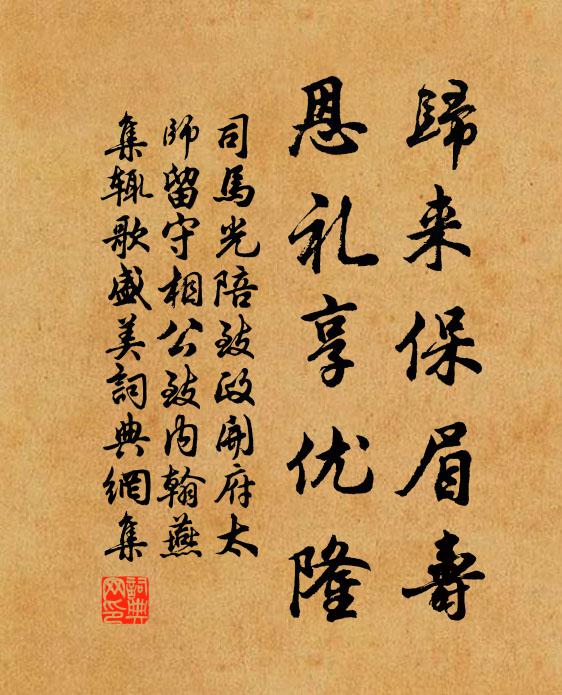 歸来保眉壽
恩礼享优隆
司馬光陪致政開府太
師留守相公致内翰燕
集輒歌盛美詞典網集
詞典网印